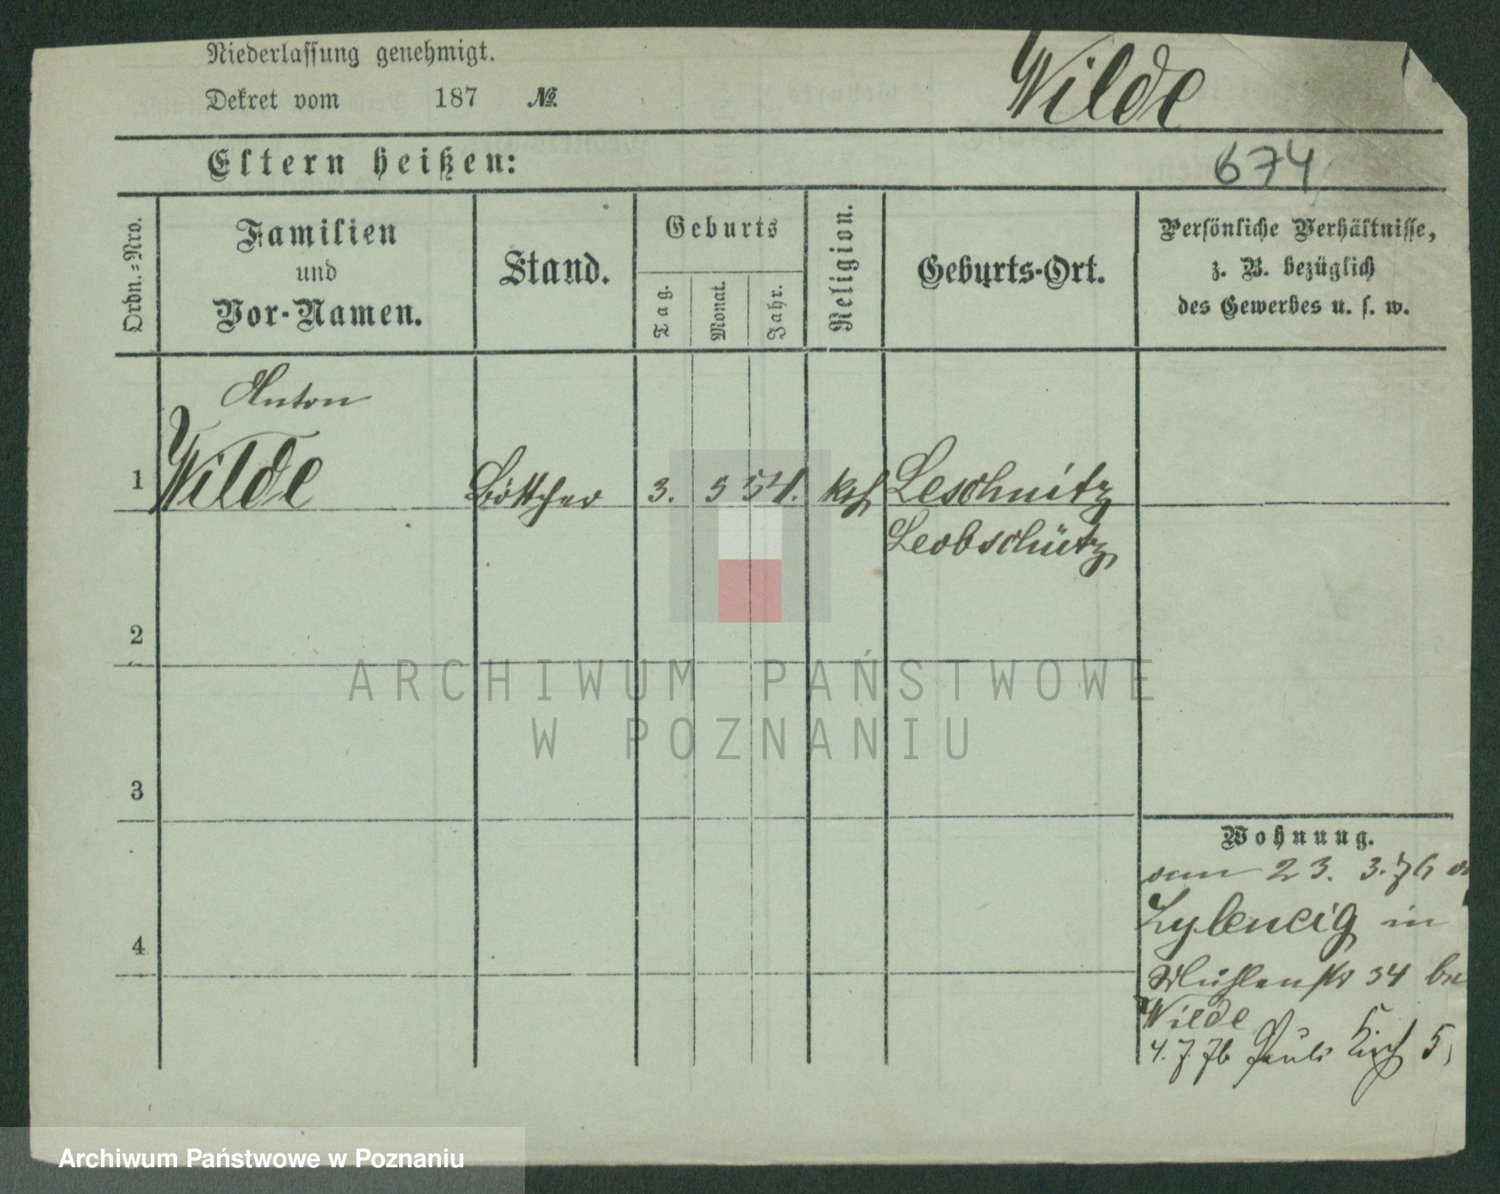 Niederlassung genehmigt.
Wilde
Dekret vom 187 №
Eltern heißen:
674
Ordn.=Nro.
Familien
und
Vor-Namen.
Stand.
Geburts
Tag.
Monat.
Jahr.
Religion.
Geburts-Ort.
Persönliche Verhältnisse,
z. B. bezüglich
des Gewerbes u. s. w.
Anton
1 Wilde Böttcher 3. 5 54. kth Leschnitz
Leobschütz
2
ARCHIWUM PAŃSTWOWE
W POZNANIU
3
Wohnung.
vom 23. 3. 76
in
4
Mühlenstr 34
Wilde
4. 7. 76 Pauli Kirch 5,
Archiwum Państwowe w Poznaniu